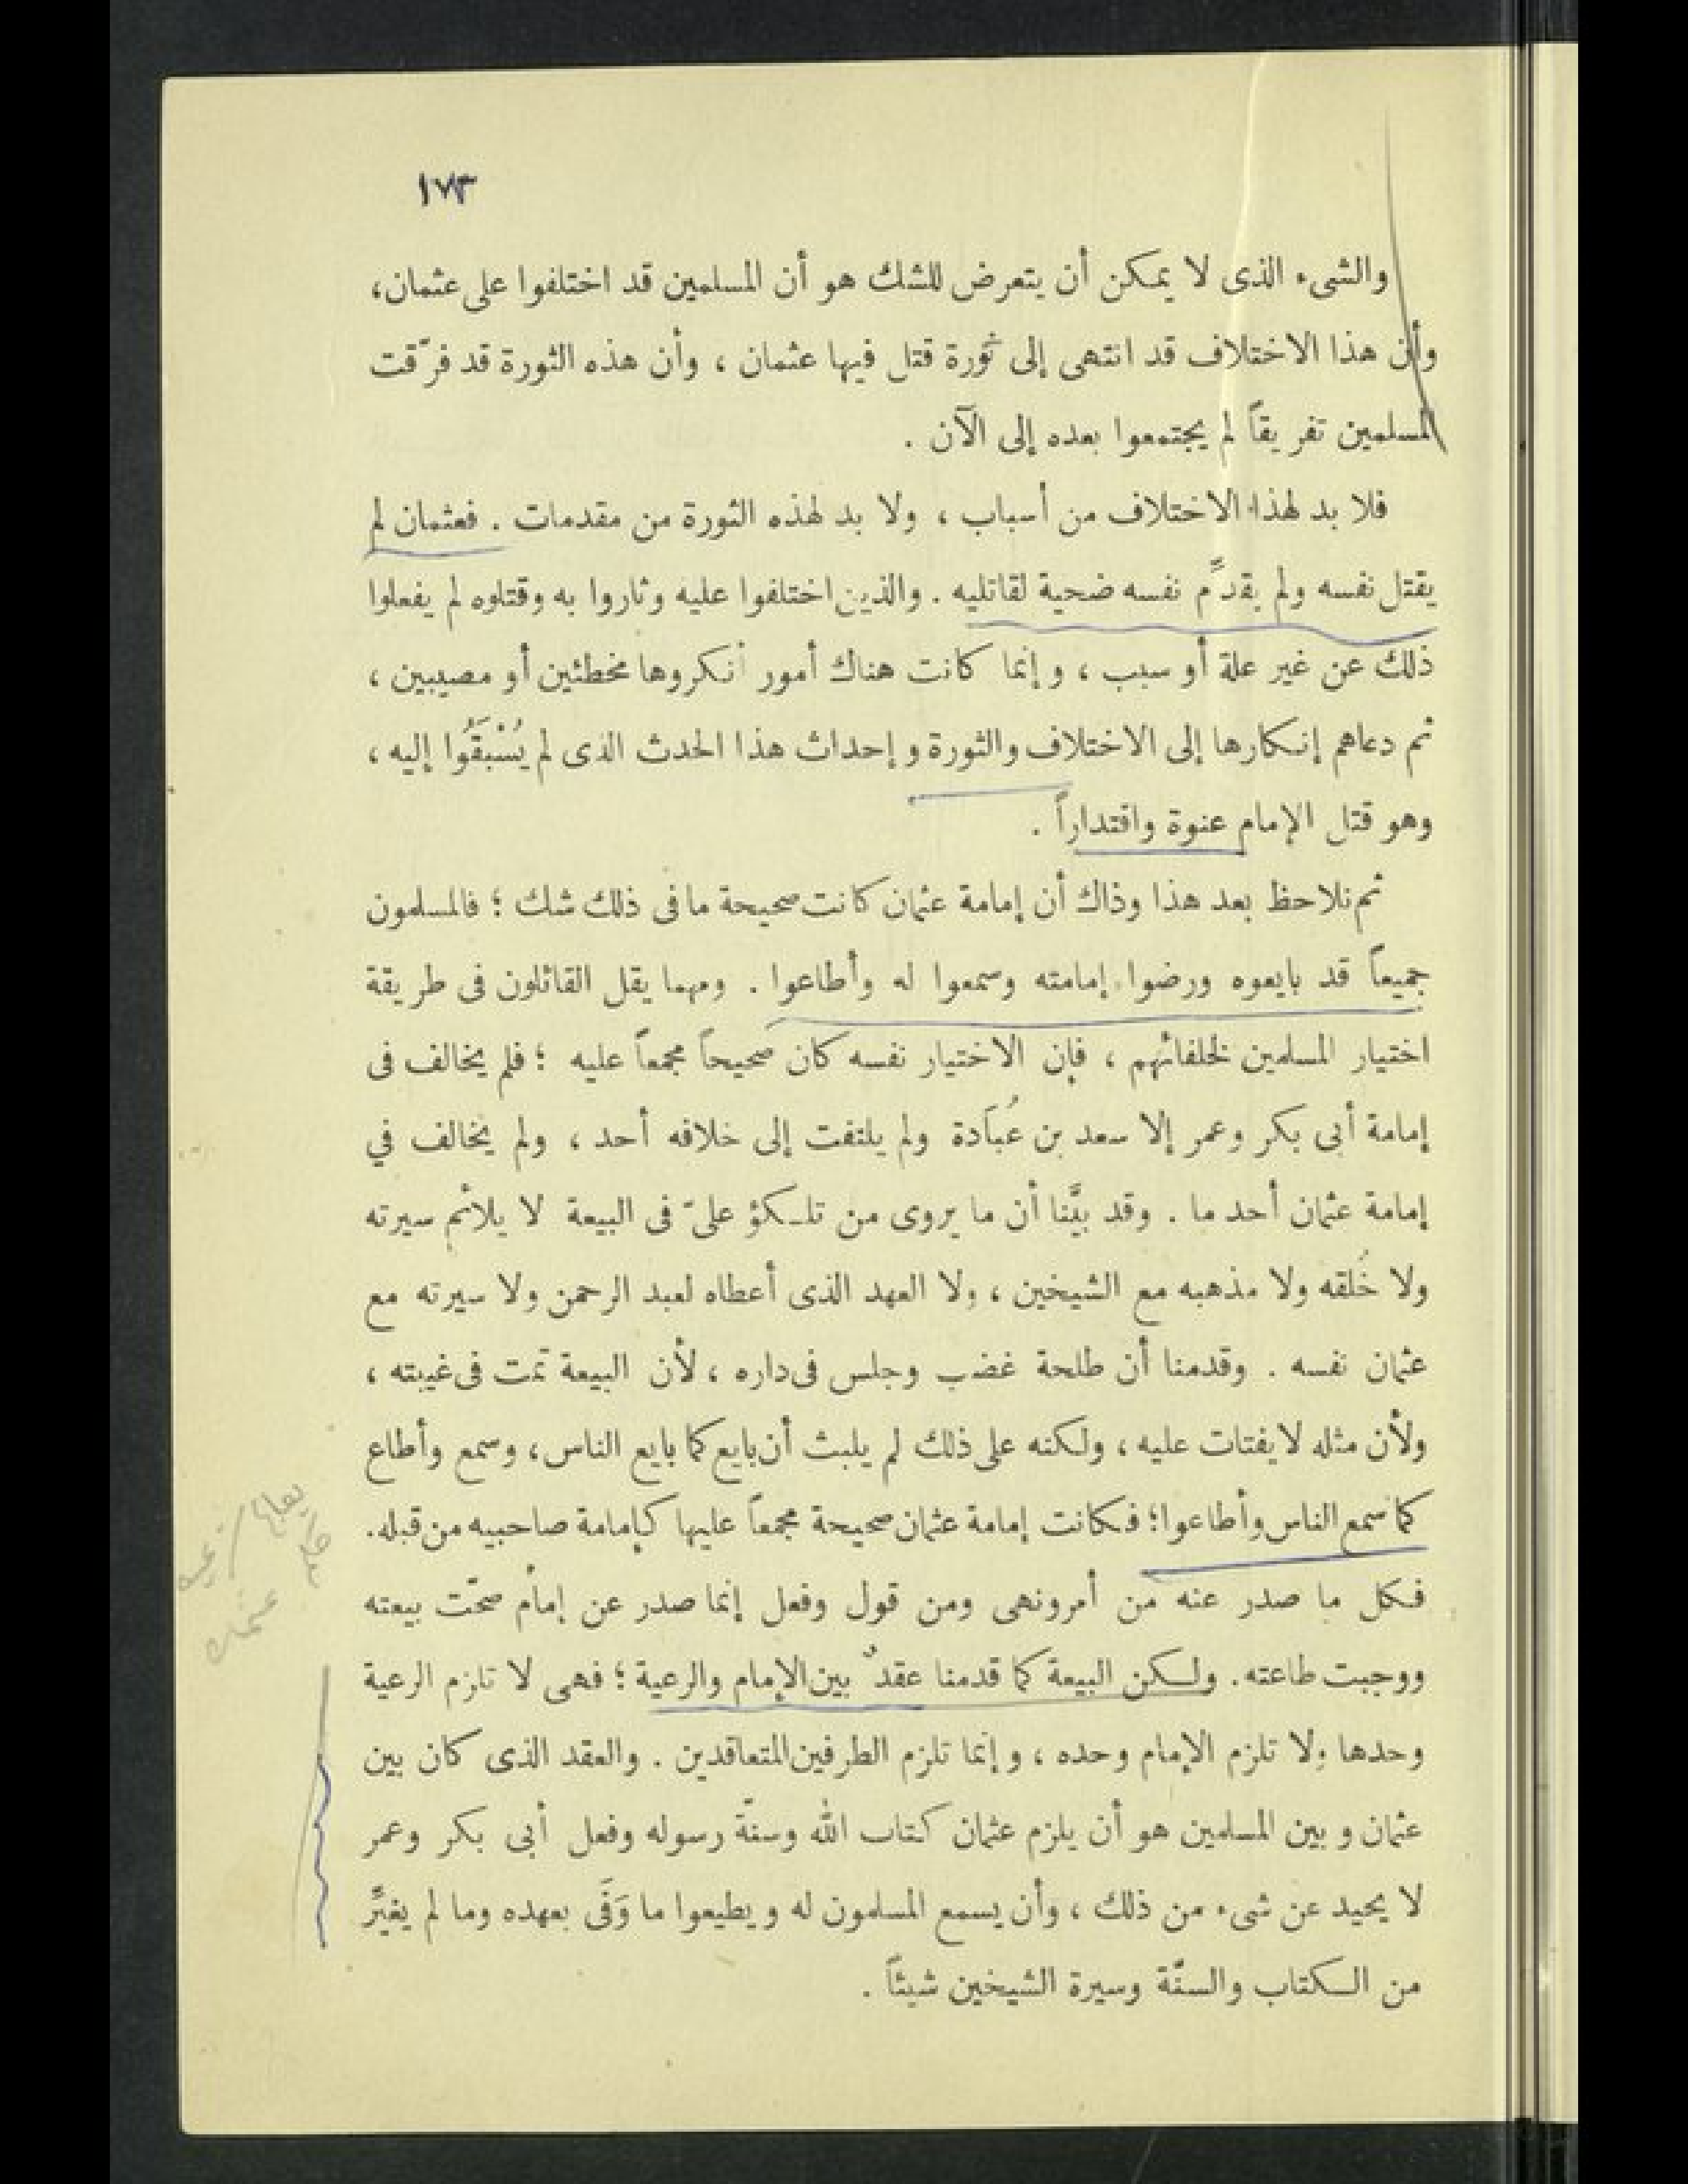 ١٧٣
والشىء الذى لا يمكن أن يتعرض للشك هو أن المسلمين قد اختلفوا على عثمان،
وأن هذا الاختلاف قد انتهى إلى ثورة قتل فيها عثمان ، وأن هذه الثورة قد فرّقت
المسلمين تفريقاً لم يجتمعوا بعده إلى الآن .
فلا بد لهذا الاختلاف من أسباب ، ولا بد لهذه الثورة من مقدمات . فعثمان لم
يقتل نفسه ولم يقدِّم نفسه ضحية لقاتليه . والذين اختلفوا عليه وثاروا به وقتلوه لم يفعلوا
ذلك عن غير علة أو سبب ، وإنما كانت هناك أمور أنكروها مخطئين أو مصيبين ،
ثم دعاهم إنكارها إلى الاختلاف والثورة وإحداث هذا الحدث الذى لم يُسْبَقُوا إليه ،
وهو قتل الإمام عنوة واقتداراً .
ثم نلاحظ بعد هذا وذاك أن إمامة عثمان كانت صحيحة ما فى ذلك شك ؛ فالمسلمون
جميعاً قد بايعوه ورضوا إمامته وسمعوا له وأطاعوا . ومهما يقل القائلون فى طريقة
اختيار المسلمين لخلفائهم ، فإن الاختيار نفسه كان صحيحاً مجمعاً عليه ؛ فلم يخالف فى
إمامة أبى بكر وعمر إلا سعد بن عُبَادة ولم يلتفت إلى خلافه أحد ، ولم يخالف في
إمامة عثمان أحد ما . وقد بيَّنا أن ما يروى من تلكؤ علىّ فى البيعة لا يلائم سيرته
ولا خُلقه ولا مذهبه مع الشيخين ، ولا العهد الذى أعطاه لعبد الرحمن ولا سيرته مع
عثمان نفسه . وقدمنا أن طلحة غضب وجلس فى داره ، لأن البيعة تمت فى غيبته ،
ولأن مثله لا يفتات عليه ، ولكنه على ذلك لم يلبث أن بايع كما بايع الناس، وسمع وأطاع
كما سمع الناس وأطاعوا؛ فكانت إمامة عثمان صحيحة مجمعاً عليها كإمامة صاحبيه من قبله.
فكل ما صدر عنه من أمر ونهى ومن قول وفعل إنما صدر عن إمام صحّت بيعته
ووجبت طاعته. ولكن البيعة كما قدمنا عقدٌ بين الإمام والرعية ؛ فهى لا تلزم الرعية
وحدها ولا تلزم الإمام وحده ، وإنما تلزم الطرفين المتعاقدين . والعقد الذى كان بين
عثمان وبين المسلمين هو أن يلزم عثمان كتاب الله وسنّة رسوله وفعل أبى بكر وعمر
لا يحيد عن شىء من ذلك ، وأن يسمع المسلمون له ويطيعوا ما وَفَى بعهده وما لم يغيِّر
من الكتاب والسنّة وسيرة الشيخين شيئاً .